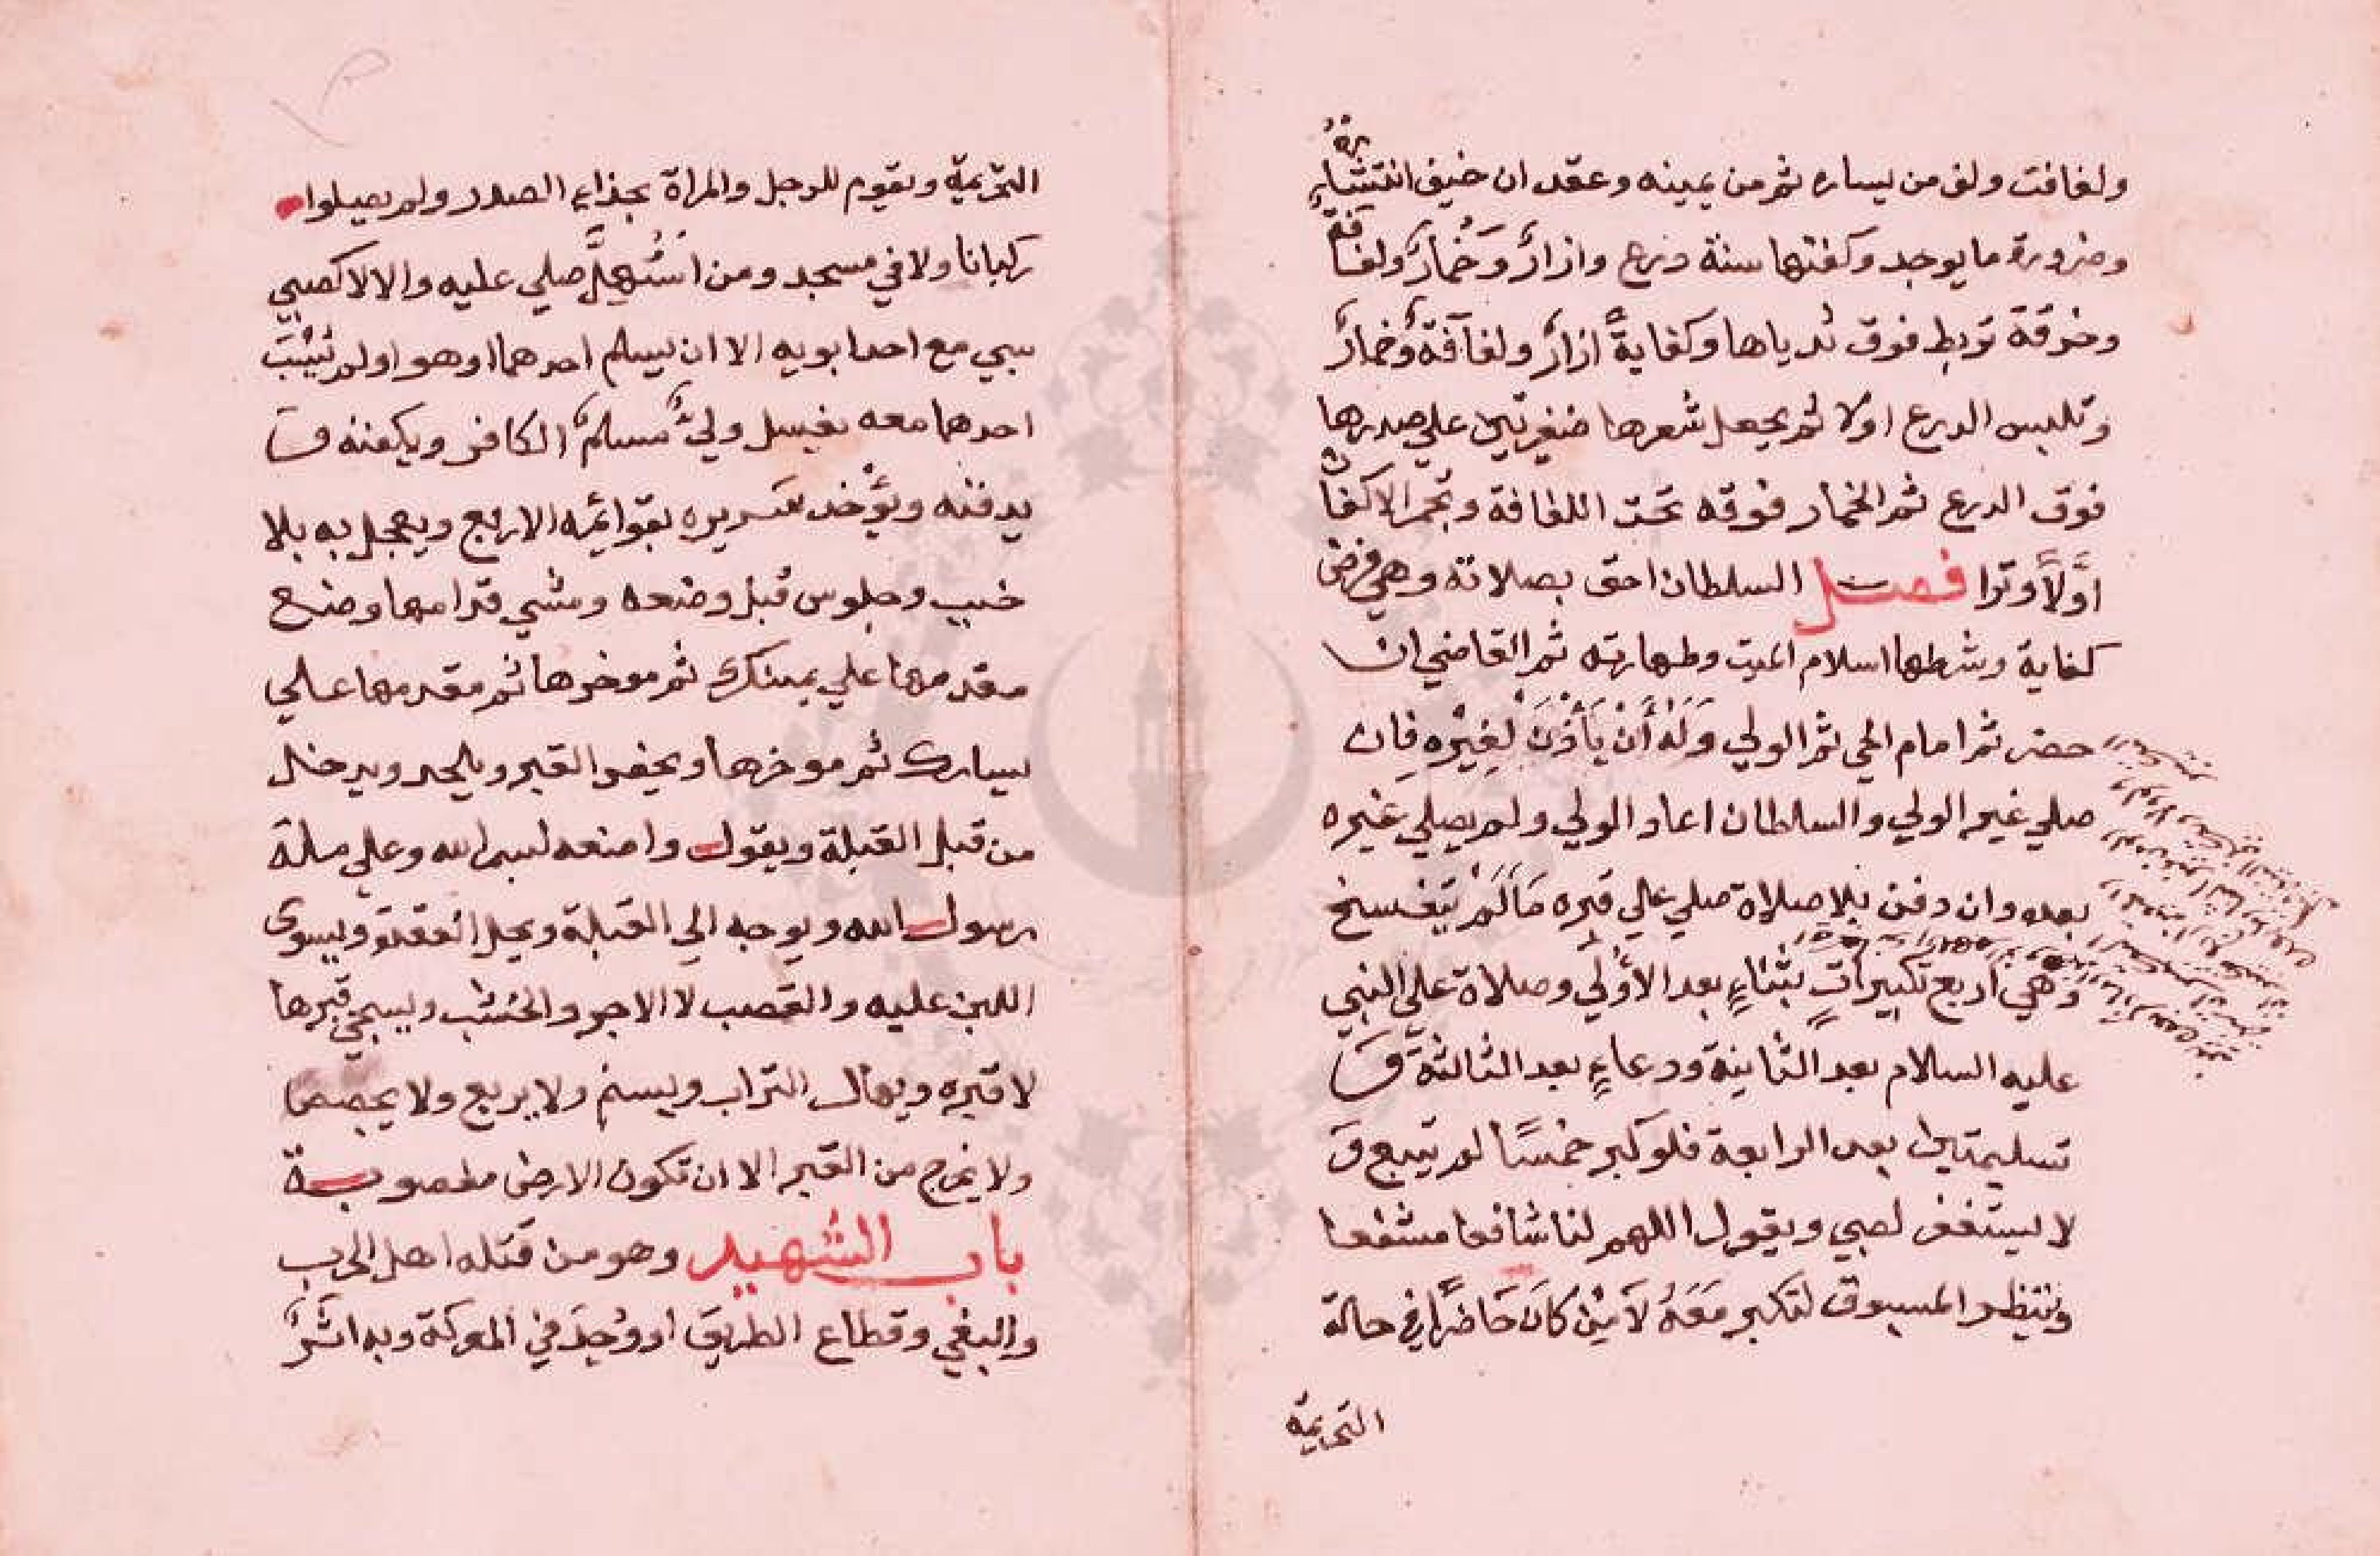 ولفافت ولف من يساره ثم من يمينه وعقد ان خيف انتشاره
وضرورة ما يوجد وكفنها سنة درع وازارٌ وخُمارٌ ولفافة
وخرقة تربط فوق ثدياها وكفاية ازارٌ ولفافة وخمارٌ
وتلبس الدرع اولا ثم يجعل شعرها ضفيرتين علي صدرها
فوق الدرع ثم الخمار فوقه تحت اللفافة وتجمر الاكفان
اوّلاً وترا فصل السلطان احق بصلاته وهي فرض
كفاية وشرطها اسلام الميت وطهارته ثم القاضي ان
حضر ثم امام الحي ثم الولي وَلَهُ أَنْ يَأْذَنَ لِغَيْرِه فان
صلي غير الولي والسلطان اعاد الولي ولم يصلي غيره
بعده وان دفن بلا صلاة صلي علي قبره مَالَمْ يتفسخ
وهي اربع تكبيراتٍ بثناءٍ بعد الأولي وصلاة علي النبي
عليه السلام بعد الثانية ودعاءٍ بعد الثالثة وَ
تسليمتين بعد الرابعة فلو كبر خمسًا لم يتبع وَ
لا يستغفر لصبي ويقول اللهم لنا شافعا مشفعا
وينتظر المسبوق لتكبر مَعَهُ لَا مَنْ كَانَ حَاضرًا في حالة
التحريمة
التحريمة ويقوم للرجل والمراة بحذاء الصدر ولم يصلوا
ركبانا ولا في مسجد ومن اسْتُهِلَّ صلي عليه والا لا كصبي
سبي مع احد ابويه الا ان يسلم احدهما او هو او لم يُسْبَ
احدهما معه يغسل وليٌّ مسلمٌ الكافر ويكفنه و
يدفنه ويؤخذ سريره بقوائمه الاربع ويعجل به بلا
خبب وجلوس قبل وضعه ومشي قدامها وضع
مقدمها علي يمينك ثم موخرها ثم مقدمها علي
يسارك ثم موخرها ويحفر القبر ويلحد ويدخل
من قبل القبلة ويقول واضعه لبسم الله وعلي ملة
رسول الله ويوجه الي القبلة ويحل العقدة ويسوى
اللبن عليه والقصب لا الاجر والخشب ويسجي قبرها
لا قبره ويهال التراب ويسنم ولا يربع ولا يجصص
ولا يخرج من القبر الا ان تكون الارض مغصوبة
باب الشهيد وهو من قتله اهل الحرب
والبغي وقطاع الطريق او وُجِدَ في المعركة وبه اثَرٌ